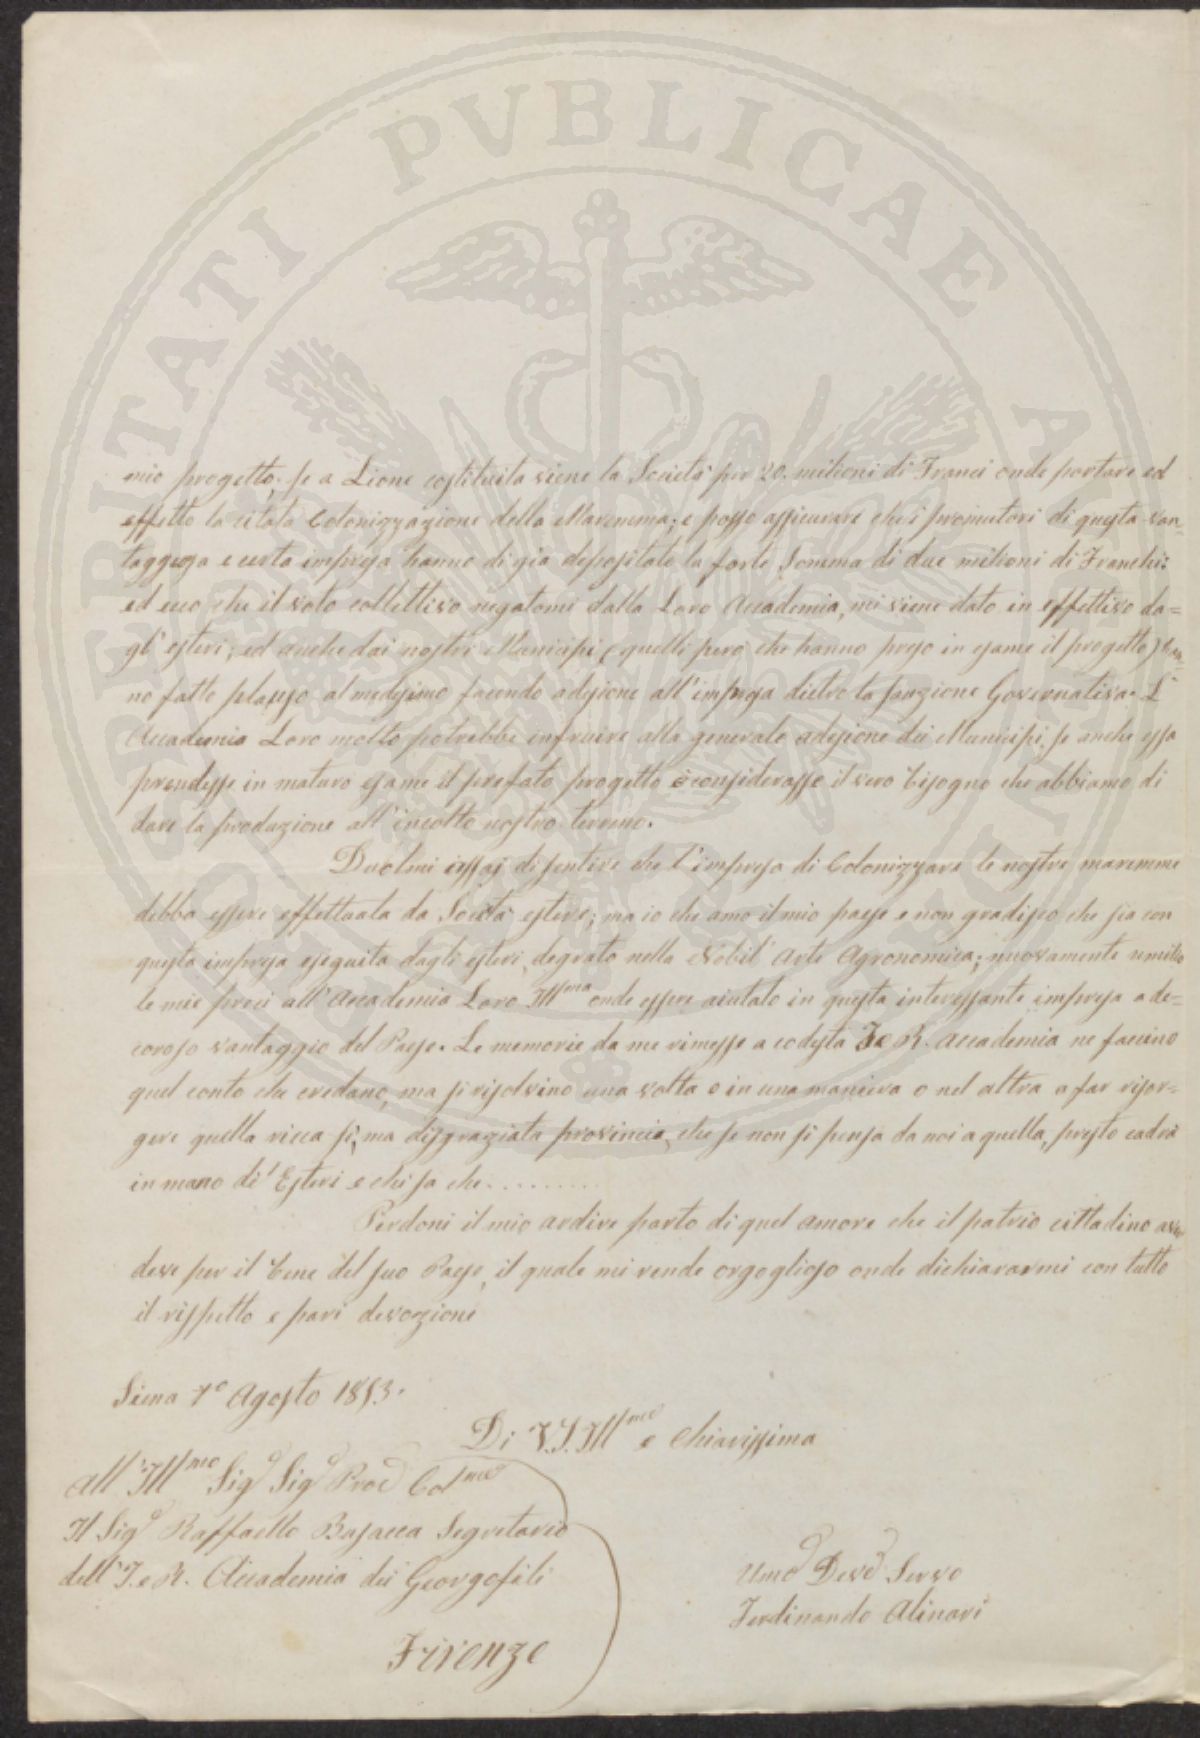 PROSPERITATI PVBLICAE AVGENDAE
mio progetto, se a Lione costituita viene la Società per 20. milioni di Franci onde portare ad
effetto la citata Colonizzazione della Maremma; e posso assicurare che i promutori di questa van-
taggiosa e certa impresa hanno di già depositato la forte Somma di due milioni di Franchi:
ed ecco che il voto collettivo negatomi dalla Loro Accademia, mi viene dato in effettivo da=
gl'esteri; ed anche dai nostri Municipi (quelli però che hanno preso in esame il progetto) han=
no fatto plauso al medesimo facendo adesione all'impresa dietro la sanzione Governativa. L'
Accademia Loro molto potrebbe infruire alla generale adesione dei Municipi, se anche essa
prendesse in maturo esame il prefato progetto e considerasse il vero bisogno che abbiamo di
dare la produzione all'incolto nostro terreno.
Duolmi assai di sentire che l'impresa di Colonizzare le nostre maremme
debba essere effettuata da Società estere; ma io che amo il mio paese e non gradisco che sia con
questa impresa eseguita dagli esteri, degrato nella Nobil' Arte Agronomica; nuovamente umilio
le mie preci all'Accademia Loro Ill<sup>ma</sup> onde essere aiutato in questa interessante impresa a de=
coroso vantaggio del Paese. Le memorie da me rimesse a codesta I. e R. Accademia ne faccino
quel conto che credano, ma si risolvino una volta o in una maniera o nel altra a far risor=
gere quella ricca sì, ma disgraziata provincia, che se non si pensa da noi a quella, presto cadrà
in mano di' Esteri e chi sa che.........
Perdoni il mio ardire parto di quel amore che il patrio cittadino aver
deve per il bene del suo Paese, il quale mi rende orgoglioso onde dichiararmi con tutto
il rispetto e pari devozione
Siena 1° Agosto 1853.
Di V.S. Ill<sup>ma</sup> e Chiarissima
All'Ill<sup>mo</sup> Sig<sup>r</sup> Sig<sup>r</sup> Pro<sup>e</sup> Col<sup>mo</sup>
Il Sig<sup>r</sup> Raffaello Busacca Segretario
dell'I. e R. Accademia dei Georgofili
Firenze
Umo Devo Servo
Ferdinando Alinari